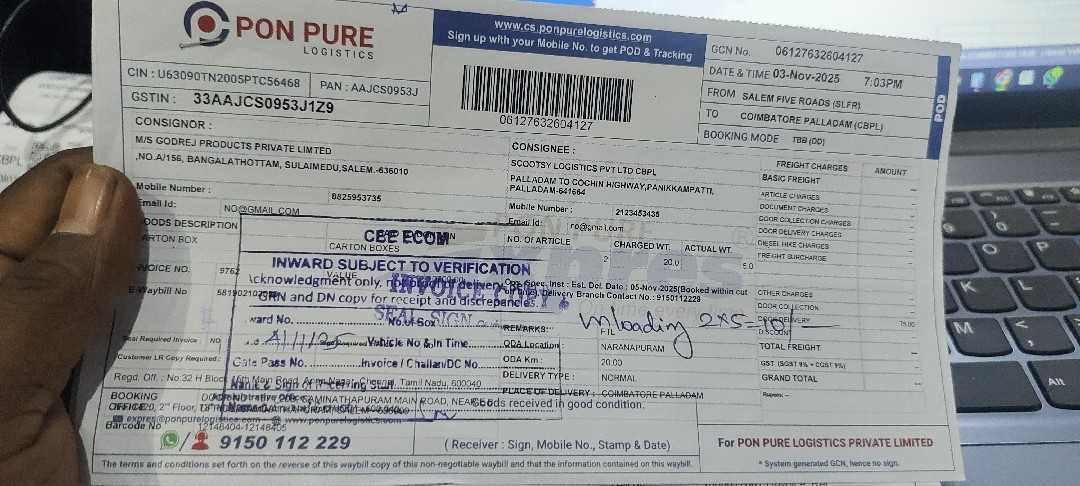 PON PURE
LOGISTICS
www.cs.ponpurelogistics.com
Sign up with your Mobile No. to get POD & Tracking
GCN No. 06127632604127
DATE & TIME 03-Nov-2025 7:03PM
FROM SALEM FIVE ROADS (SLFR)
TO COIMBATORE PALLADAM (CBPL)
BOOKING MODE TBB (DD)
POD
CIN : U63090TN2005PTC56468 PAN : AAJCS0953J
GSTIN : 33AAJCS0953J1Z9
06127632604127
CONSIGNOR :
M/S GODREJ PRODUCTS PRIVATE LIMTED
,NO.A/156, BANGALATHOTTAM, SULAIMEDU,SALEM.-636010
Mobile Number : 8825953735
Email Id: NO@GMAIL.COM
CONSIGNEE :
SCOOTSY LOGISTICS PVT LTD CBPL
PALLADAM TO COCHIN HIGHWAY,PANIKKAMPATTI,
PALLADAM-641664
Mobile Number : 2123453435
Email Id: no@gmail.com
FREIGHT CHARGES AMOUNT
BASIC FREIGHT
ARTICLE CHARGES
DOCUMENT CHARGES
DOOR COLLECTION CHARGES
DOOR DELIVERY CHARGES
DIESEL HIKE CHARGES
FREIGHT SURCHARGE
OTHER CHARGES
DOOR COLLECTION
DOOR DELIVERY 75.00
DISCOUNT
TOTAL FREIGHT
GST (SGST 9% + CGST 9%)
GRAND TOTAL
OODS DESCRIPTION
ARTON BOX CARTON BOXES
NO. OF ARTICLE CHARGED WT. ACTUAL WT.
2 20.0 5.0
VOICE NO. 9762 VALUE
E-Waybill No
CEE ECOM
INWARD SUBJECT TO VERIFICATION
Acknowledgment only, not proof of delivery. Refer
GRN and DN copy for receipt and discrepancies.
ward No. No.of Box
Vehicle No & In Time
Gate Pass No. Invoice / Challan/DC No.
Name & Sign of Receiving Staff
INVOICE COPY &
SEAL SIGN
Spec. Inst : Est. Del. Date : 05-Nov-2025(Booked within cut
Delivery Branch Contact No : 9150112229
REMARKS: FTL
Unloading 2x5=10/-
ODA Location : NARANAPURAM
ODA Km : 20.00
DELIVERY TYPE : NORMAL
PLACE OF DELIVERY : COIMBATORE PALLADAM
Goods received in good condition.
Seal Required Invoice : NO
Customer LR Copy Required :
Regd. Off. : No:32 H Block Tamil Nadu, 600040
BOOKING
OFFICE
Barcode No 12148404-12148405
9150 112 229
( Receiver : Sign, Mobile No., Stamp & Date)
For PON PURE LOGISTICS PRIVATE LIMITED
* System generated GCN, hence no sign.
The terms and conditions set forth on the reverse of this waybill copy of this non-negotiable waybill and that the information contained on this waybill.